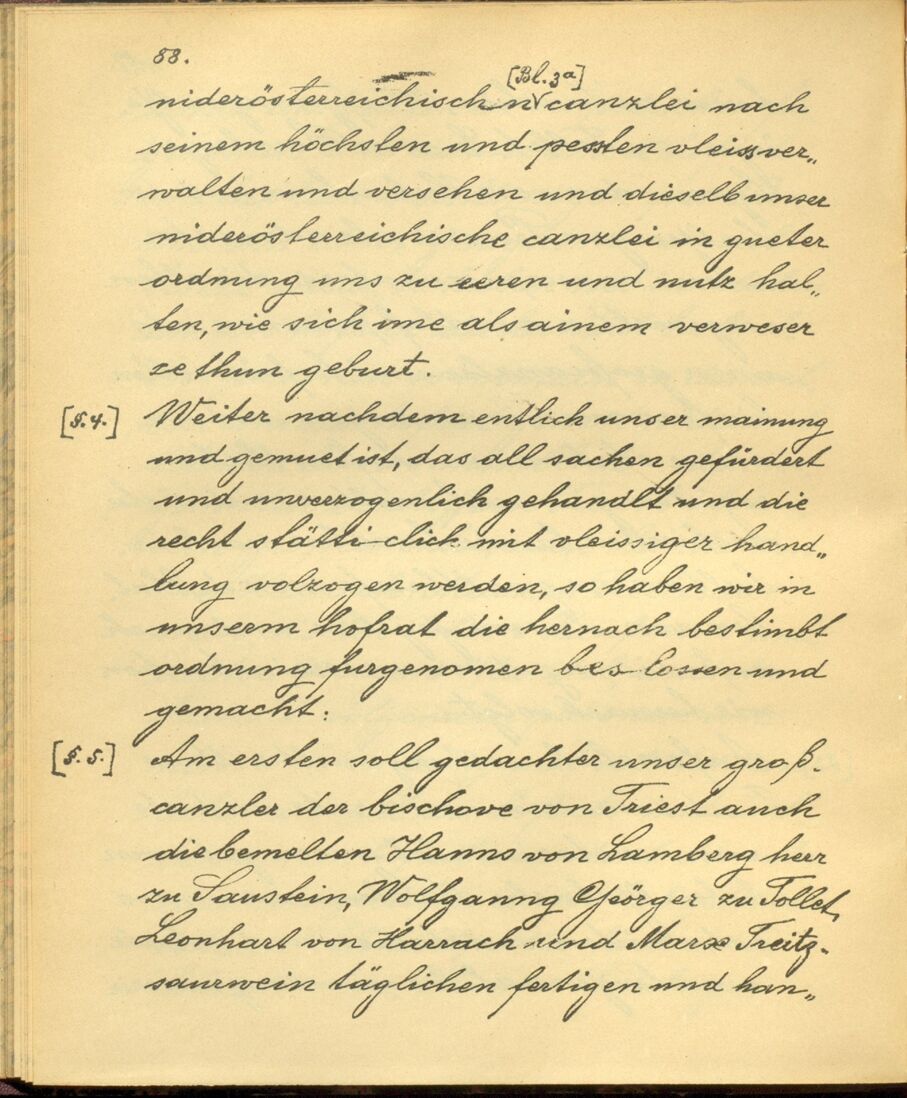 88.
[Bl. 3a]
niderösterreichischn canzlei nach
seinem höchsten und pessten vleiss ver„
walten und versehen und dieselb unser
niderösterreichische canzlei in gueter
ordnung uns zu eeren und nutz hal„
ten, wie sich ime als ainem verweser
ze thun geburt.
[§. 4.] Weiter nachdem entlich unser mainung
und gemuet ist, das all sachen gefürdert
und unverzogenlich gehandlt und die
recht stätticlich mit vleissiger hand„
lung volzogen werden, so haben wir in
unserm hofrat die hernach bestimbt
ordnung furgenomen beslossen und
gemacht:
[§. 5.] Am ersten soll gedachter unser groß-
canzler der bischove von Triest auch
die bemelten Hanns von Lamberg herr
zu Saustein, Wolfganng Geörger zu Tollet,
Leonhart von Harrach und Marx Treitz-
saurwein täglichen fertigen und han„